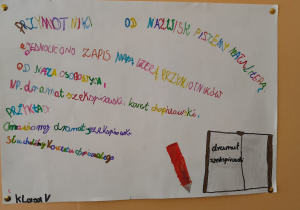 PRZYMIOTNIKI OD NAZWISK PISZEMY MAŁĄ LITERĄ
UJEDNOLICONO ZAPIS MAŁĄ LITERĄ PRZYMIOTNIKÓW
OD NAZW OSOBOWYCH,
NP. dramat szekspirowski, koncert chopinowski.
PRZYKŁAD
Omawiamy dramat szekspirowski
Słuchaliśmy koncertu chopinowskiego
dramat
szekspirowski
Klasa V